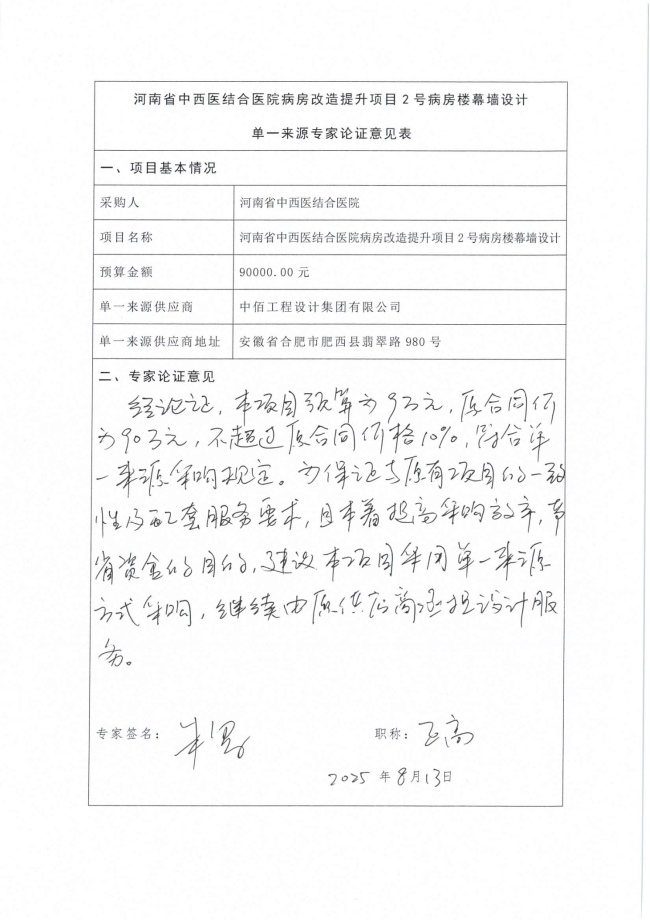 河南省中西医结合医院病房改造提升项目2号病房楼幕墙设计
单一来源专家论证意见表
一、项目基本情况
采购人 河南省中西医结合医院
项目名称 河南省中西医结合医院病房改造提升项目2号病房楼幕墙设计
预算金额 90000.00 元
单一来源供应商 中佰工程设计集团有限公司
单一来源供应商地址 安徽省合肥市肥西县翡翠路980号
二、专家论证意见
经论证，本项目预算为9万元，原合同价
为90万元，不超过原合同价格10%，符合单
一来源采购规定。为保证与原有项目的一致
性及配套服务要求，且本着提高采购效率，节
省资金的目的，建议本项目采用单一来源
方式采购，继续由原供应商承担设计服
务。
专家签名： 职称：正高
2025年8月13日